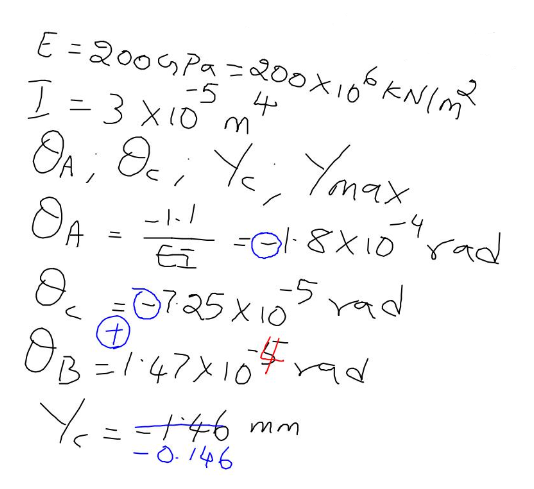 E = 200GPa = 200×10⁶ KN/m²
I = 3 ×10⁻⁵ m⁴
θA ; θc ; Yc ; Ymax
θA = -1.1/EI = -1.8×10⁻⁴ rad
θc = -7.25×10⁻⁵ rad
+
θB = 1.47×10⁻⁴ rad
Yc = -1.46 mm
-0.146